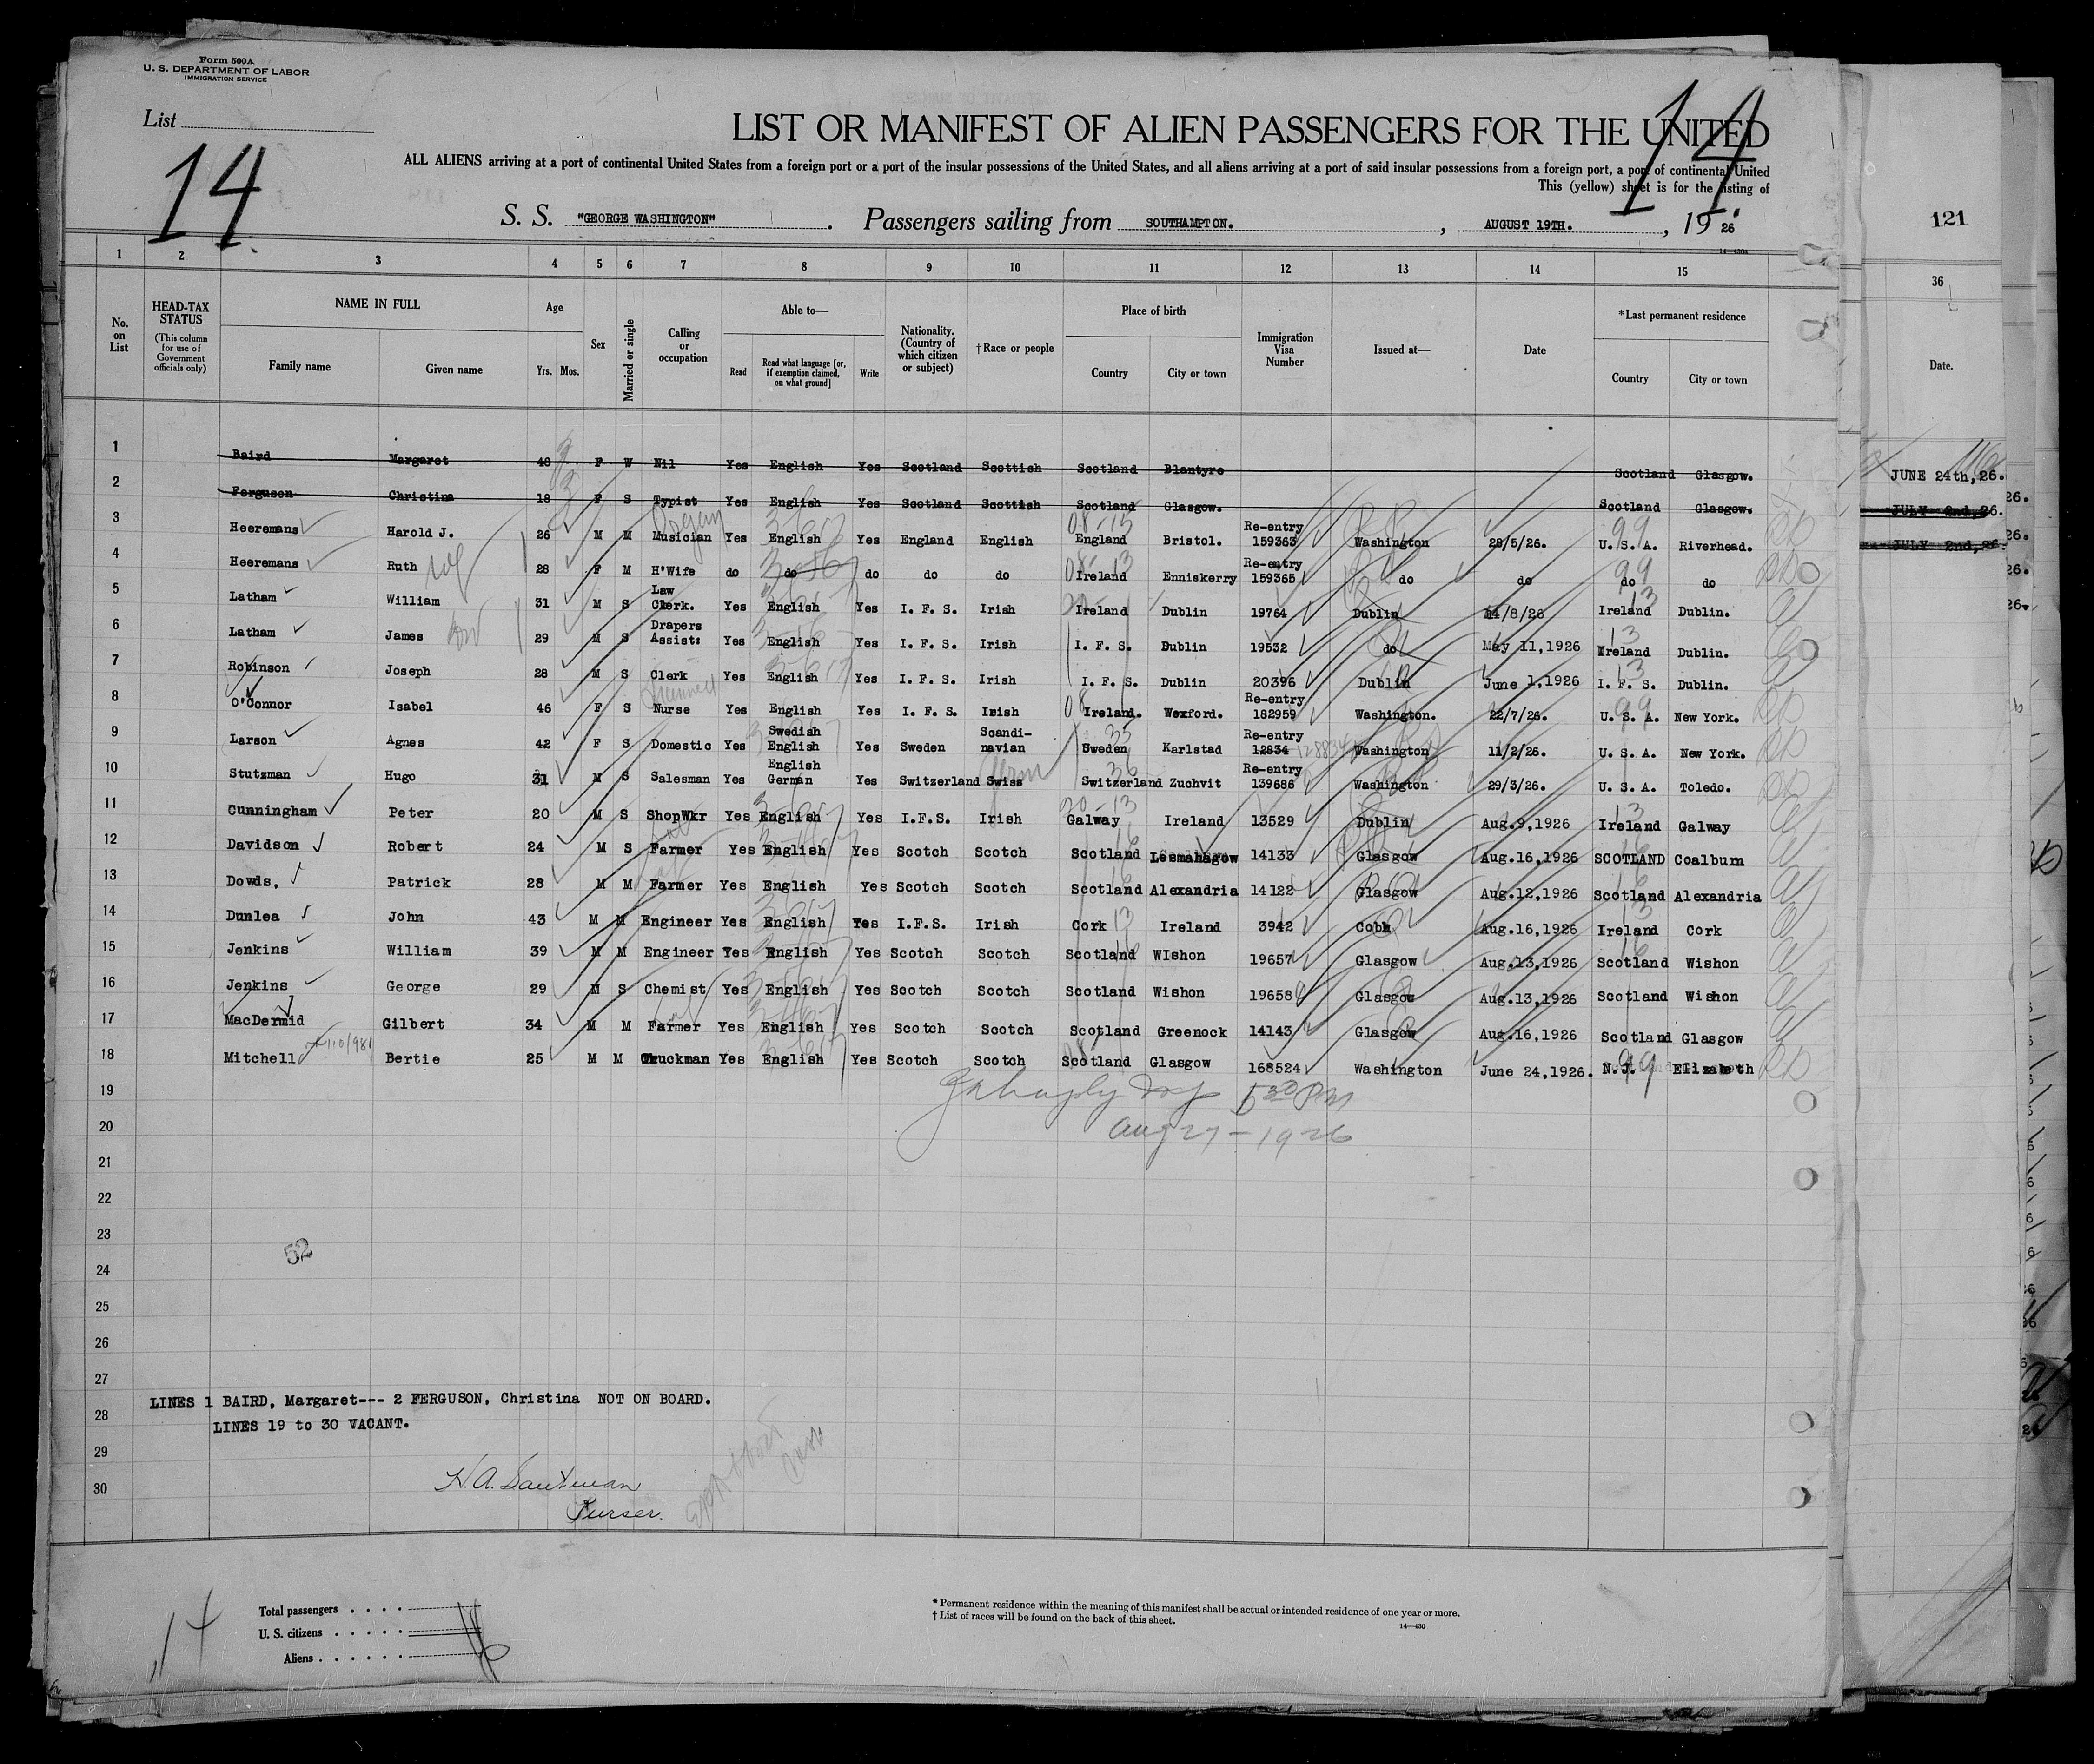 Form 500A
U. S. DEPARTMENT OF LABOR
IMMIGRATION SERVICE
List
14
14
LIST OR MANIFEST OF ALIEN PASSENGERS FOR THE UNITED
ALL ALIENS arriving at a port of continental United States from a foreign port or a port of the insular possessions of the United States, and all aliens arriving at a port of said insular possessions from a foreign port, a port of continental United
This (yellow) sheet is for the listing of
S. S. "GEORGE WASHINGTON". Passengers sailing from SOUTHAMPTON., AUGUST 19TH., 19 26
121
14—430a
1 2 3 4 5 6 7 8 9 10 11 12 13 14 15 36
No. on List
HEAD-TAX STATUS (This column for use of Government officials only)
NAME IN FULL Family name Given name
Age Yrs. Mos.
Sex
Married or single
Calling or occupation
Able to— Read Read what language [or, if exemption claimed, on what ground] Write
Nationality. (Country of which citizen or subject)
†Race or people
Place of birth Country City or town
Immigration Visa Number
Issued at—
Date
*Last permanent residence Country City or town
Date.
1 Baird Margaret 48 F W Nil Yes English Yes Scotland Scottish Scotland Blantyre Scotland Glasgow.
JUNE 24th, 26.
2 Ferguson Christina 18 F S Typist Yes English Yes Scotland Scottish Scotland Glasgow. Scotland Glasgow.
JULY 2nd, 26.
3 Heeremans Harold J. 26 M M Musician Yes English Yes England English England Bristol. Re-entry 159363 Washington 28/5/26. U. S. A. Riverhead.
JULY 2nd, 26.
4 Heeremans Ruth 28 F M H'Wife do do do do do Ireland Enniskerry Re-entry 159365 do do do do
5 Latham William 31 M S Law Clerk. Yes English Yes I. F. S. Irish Ireland Dublin 19764 Dublin 14/8/26 Ireland Dublin.
6 Latham James 29 M S Drapers Assist: Yes English Yes I. F. S. Irish I. F. S. Dublin 19532 do May 11,1926 Ireland Dublin.
7 Robinson Joseph 28 M S Clerk Yes English Yes I. F. S. Irish I. F. S. Dublin 20396 Dublin June 1,1926 I. F. S. Dublin.
8 O'Connor Isabel 46 F S Nurse Yes English Yes I. F. S. Irish Ireland. Wexford. Re-entry 182959 Washington. 22/7/26. U. S. A. New York.
9 Larson Agnes 42 F S Domestic Yes Swedish English Yes Sweden Scandi-navian Sweden Karlstad Re-entry 12834 Washington 11/2/26. U. S. A. New York.
10 Stutzman Hugo 31 M S Salesman Yes English German Yes Switzerland Swiss Switzerland Zuchvit Re-entry 139686 Washington 29/3/26. U. S. A. Toledo.
11 Cunningham Peter 20 M S ShopWkr Yes English Yes I.F.S. Irish Galway Ireland 13529 Dublin Aug.9,1926 Ireland Galway
12 Davidson Robert 24 M S Farmer Yes English Yes Scotch Scotch Scotland Lesmahagow 14133 Glasgow Aug.16,1926 SCOTLAND Coalburn
13 Dowds, Patrick 28 M M Farmer Yes English Yes Scotch Scotch Scotland Alexandria 14122 Glasgow Aug.12,1926 Scotland Alexandria
14 Dunlea John 43 M M Engineer Yes English Yes I.F.S. Irish Cork Ireland 3942 Cobh Aug.16,1926 Ireland Cork
15 Jenkins William 39 M M Engineer Yes English Yes Scotch Scotch Scotland WIshon 19657 Glasgow Aug.13,1926 Scotland Wishon
16 Jenkins George 29 M S Chemist Yes English Yes Scotch Scotch Scotland Wishon 19658 Glasgow Aug.13,1926 Scotland Wishon
17 MacDermid Gilbert 34 M M Farmer Yes English Yes Scotch Scotch Scotland Greenock 14143 Glasgow Aug.16,1926 Scotland Glasgow
18 Mitchell Bertie 25 M M Truckman Yes English Yes Scotch Scotch Scotland Glasgow 168524 Washington June 24,1926. N.J. Elizabeth
19
20
Aug 27 - 1926
21
22
23
52
24
25
26
27
LINES 1 BAIRD, Margaret--- 2 FERGUSON, Christina NOT ON BOARD.
28
LINES 19 to 30 VACANT.
29
30
Purser.
14
Total passengers
U. S. citizens
Aliens
16
* Permanent residence within the meaning of this manifest shall be actual or intended residence of one year or more.
† List of races will be found on the back of this sheet.
14—430